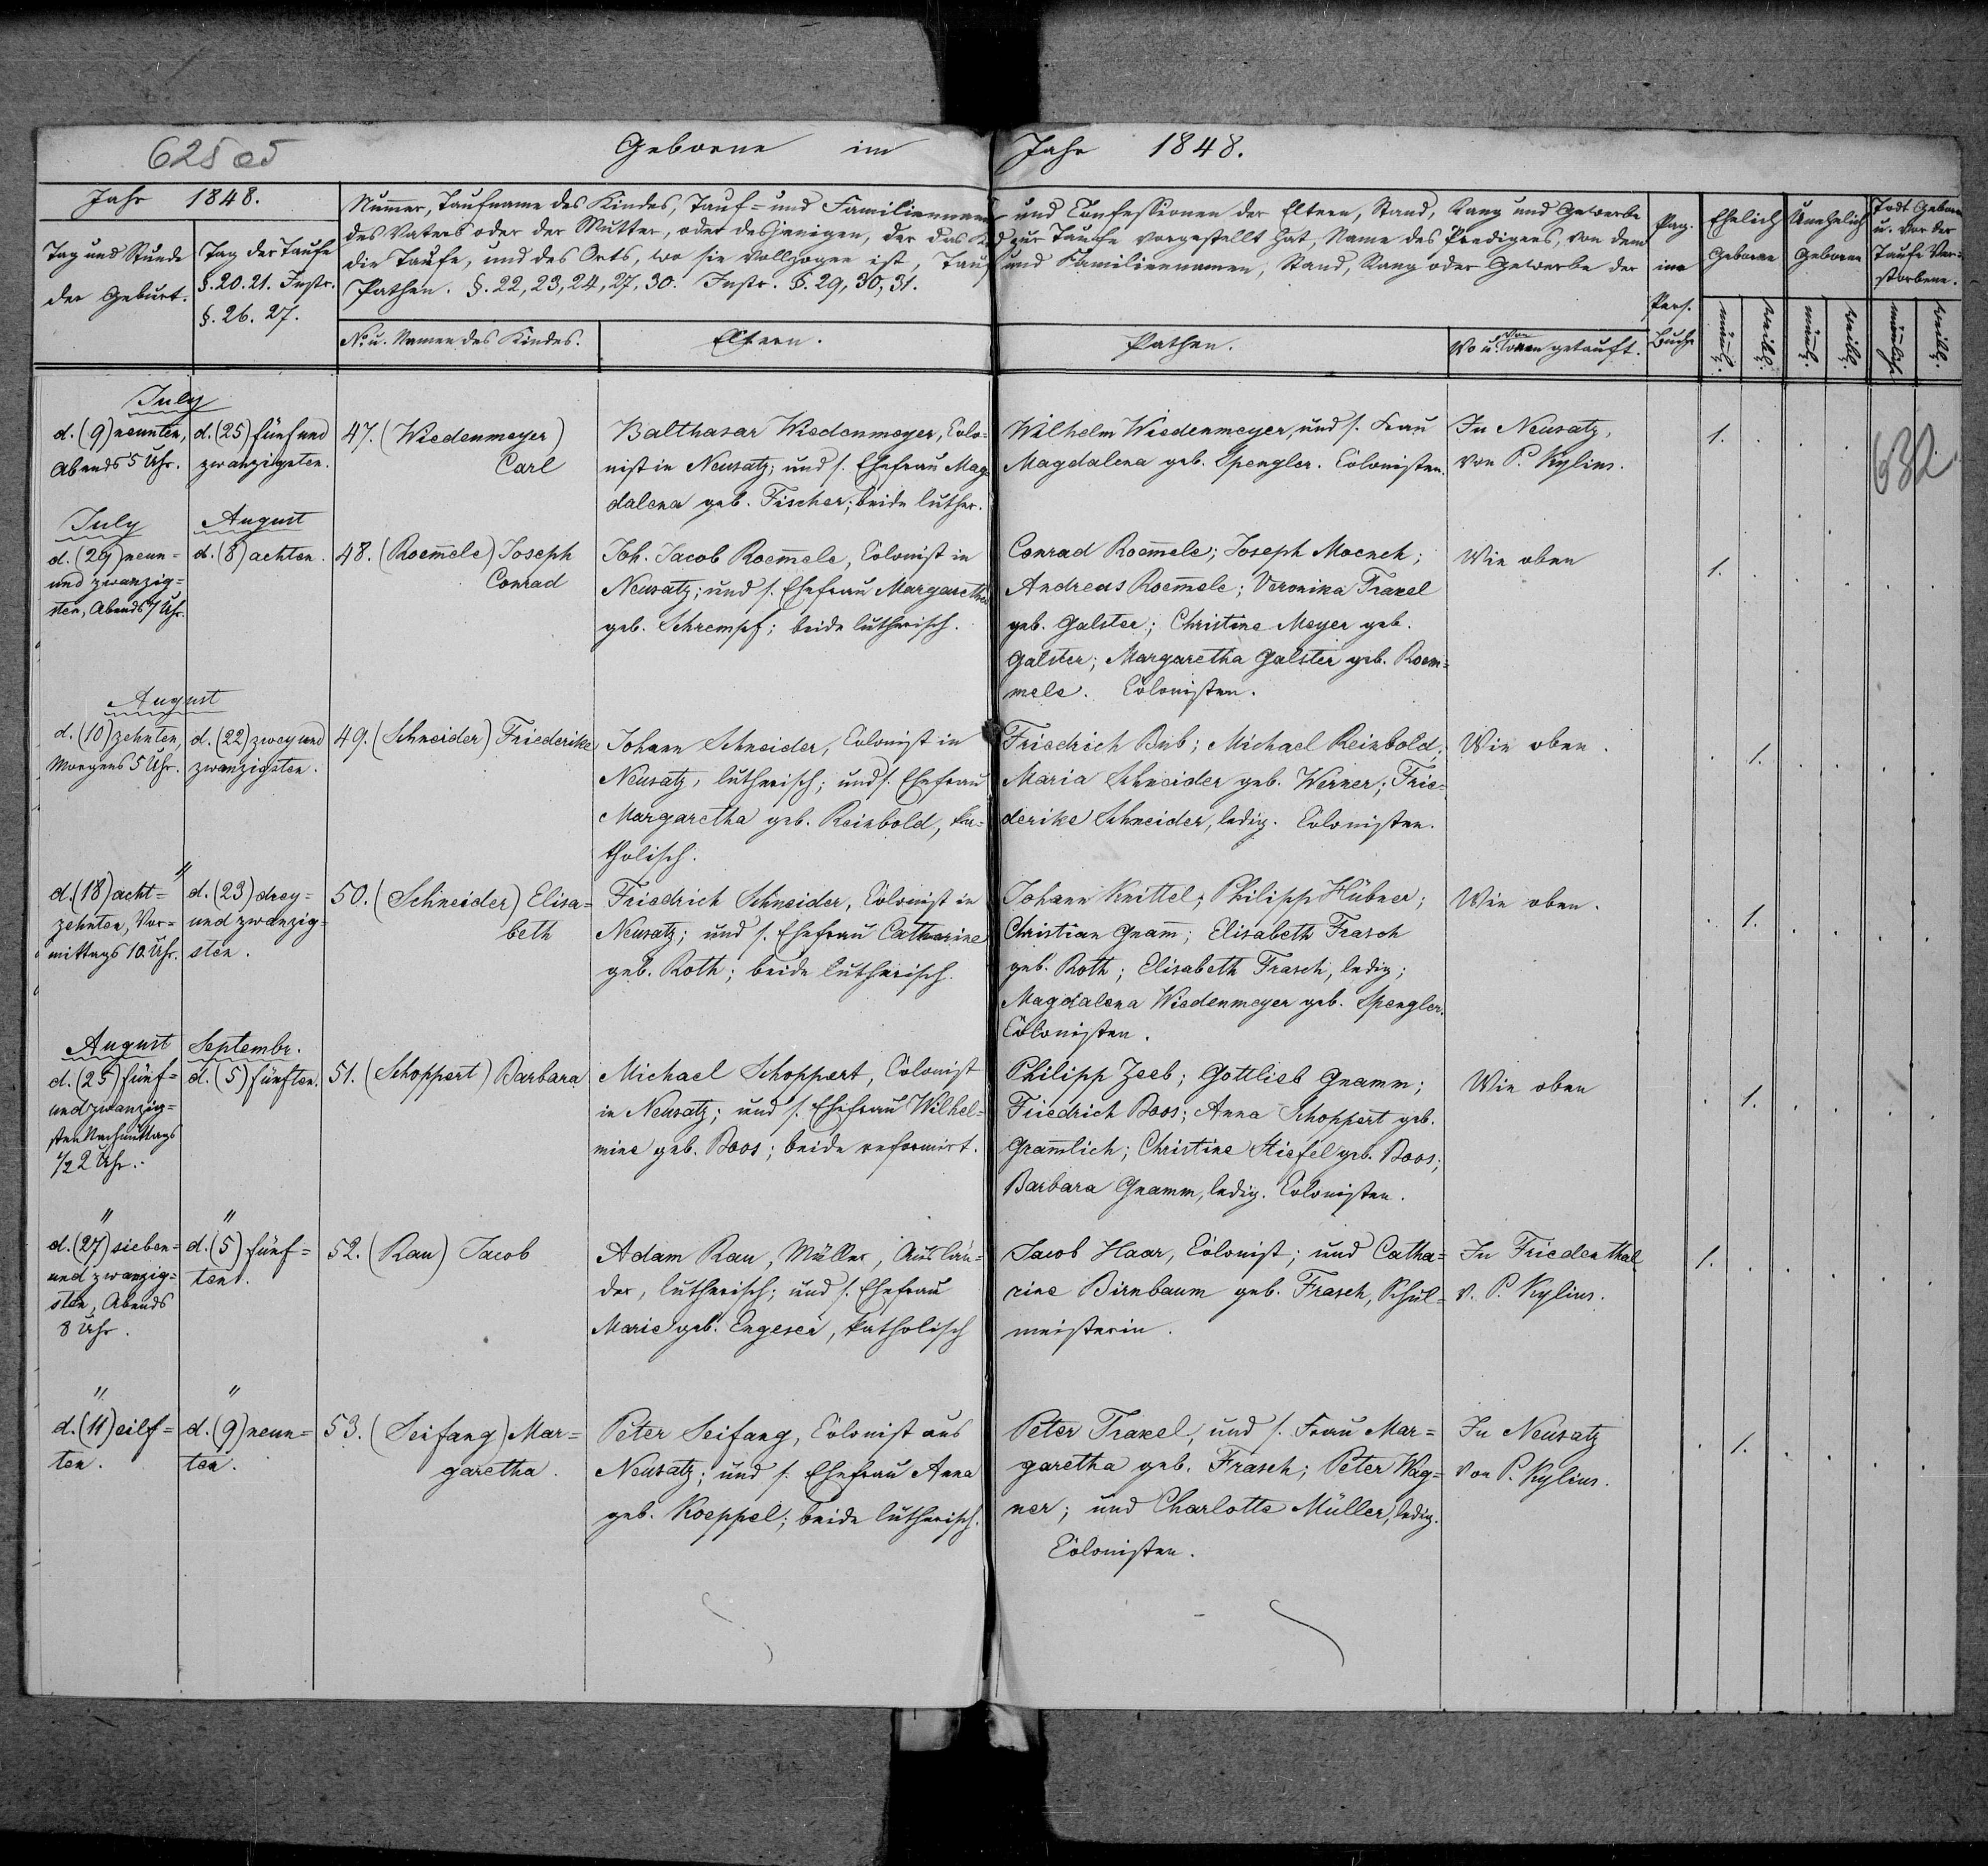 625 05
Geborne im Jahr 1848.
Jahr 1848.
Tag und Stunde
der Geburt.
Tag der Taufe
§. 20. 21. Instr.
§. 26. 27.
Numer, Taufname des Kindes, Tauf= und Familiennamen und Confessionen der Eltern, Stand, Rang und Gewerbe
des Vaters oder der Mutter, oder desjenigen, der das Kind zur Taufe vorgestellt hat, Name des Predigers, von dem
die Taufe, und des Orts, wo sie vollzogen ist, Tauf und Familiennamen, Stand, Rang oder Gewerbe der
Pathen. §. 22, 23, 24, 27, 30. Instr. §. 29, 30, 31.
No. u. Namen des Kindes.
Eltern.
Pathen.
Wo u. von wem getauft.
Pag.
im
Pers.
Buche
Ehelich
Geborne
Unehelich
Geborne
Todt Geborne
u. vor der
Taufe Ver=
storbene.
männl.
weibl.
männl.
weibl.
männl.
weibl.
July
d. (9) neunten,
Abends 5 Uhr.
d. (25) fünf und
zwanzigsten.
47. (Wiedenmeyer)
Carl
Balthasar Wiedenmeyer, Colo=
nist in Neusatz; und s. Ehefrau Mag=
dalena geb. Fischer; beide luther.
Wilhelm Wiedenmeyer, und s. Frau
Magdalena geb. Spengler. Colonisten.
In Neusatz,
von P. Kylius.
1.
632
July
d. (29) neun=
und zwanzig=
sten, Abends 7 Uhr.
August
d. (8) achten.
48. (Roem̄ele) Joseph
Conrad
Joh. Jacob Roem̄ele, Colonist in
Neusatz; und s. Ehefrau Margaretha
geb. Schrempf; beide lutherisch.
Conrad Roem̄ele; Joseph Moench;
Andreas Roem̄ele; Veronika Traxel
geb. Galster; Christine Meyer geb.
Galster; Margaretha Galster geb. Roem=
mele. Colonisten.
Wie oben
1.
August
d. (10) zehnten,
Morgens 5 Uhr.
d. (22) zwey und
zwanzigsten.
49. (Schneider) Friederike
Johann Schneider, Colonist in
Neusatz, lutherisch; und s. Ehefrau
Margaretha geb. Reinbold, ka=
tholisch.
Friedrich Bub; Michael Reinbold;
Maria Schneider geb. Werner; Frie=
derike Schneider, ledig. Colonisten.
Wie oben.
1.
"
d. (18) acht=
zehnten, Vor=
mittags 10 Uhr.
d. (23) drey=
und zwanzig=
sten.
50. (Schneider) Elisa=
beth
Friedrich Schneider, Colonist in
Neusatz; und s. Ehefrau Catharine
geb. Roth; beide lutherisch.
Johann Knittel; Philipp Hübner;
Christian Gnam̄; Elisabeth Frasch
geb. Roth; Elisabeth Frasch, ledig;
Magdalena Wiedenmeyer geb. Spengler.
Colonisten.
Wie oben.
1.
August
d. (25) fünf=
und zwanzig=
sten Nachmittags
1/2 2 Uhr.
Septembr.
d. (5) fünften.
51. (Schoppert) Barbara
Michael Schoppert, Colonist
in Neusatz; und s. Ehefrau Wilhel=
mine geb. Boos; beide reformirt.
Philipp Zeeb; Gottlieb Gnamm;
Friedrich Boos; Anna Schoppert geb.
Gram̄lich; Christine Stiefel geb. Boos;
Barbara Gnamm, ledig. Colonisten.
Wie oben
1.
"
d. (27) sieben=
und zwanzig=
sten, Abends
8 Uhr.
"
d. (5) fünf=
ten.
52. (Rau) Jacob
Adam Rau, Müller, Auslän=
der, lutherisch; und s. Ehefrau
Marie geb. Engeser, katholisch
Jacob Haar, Colonist; und Catha=
rine Birnbaum geb. Frasch, Schul=
meisterin.
In Friedenthal
v. P. Kylius.
1.
"
d. (11) eilf=
ten.
"
d. (9) neun=
ten.
53. (Seifang) Mar=
garetha.
Peter Seifang, Colonist aus
Neusatz; und s. Ehefrau Anna
geb. Koeppel; beide lutherisch.
Peter Traxel, und s. Frau Mar=
garetha geb. Frasch; Peter Wag=
ner; und Charlotte Müller, ledig.
Colonisten.
In Neusatz
von P. Kylius.
1.